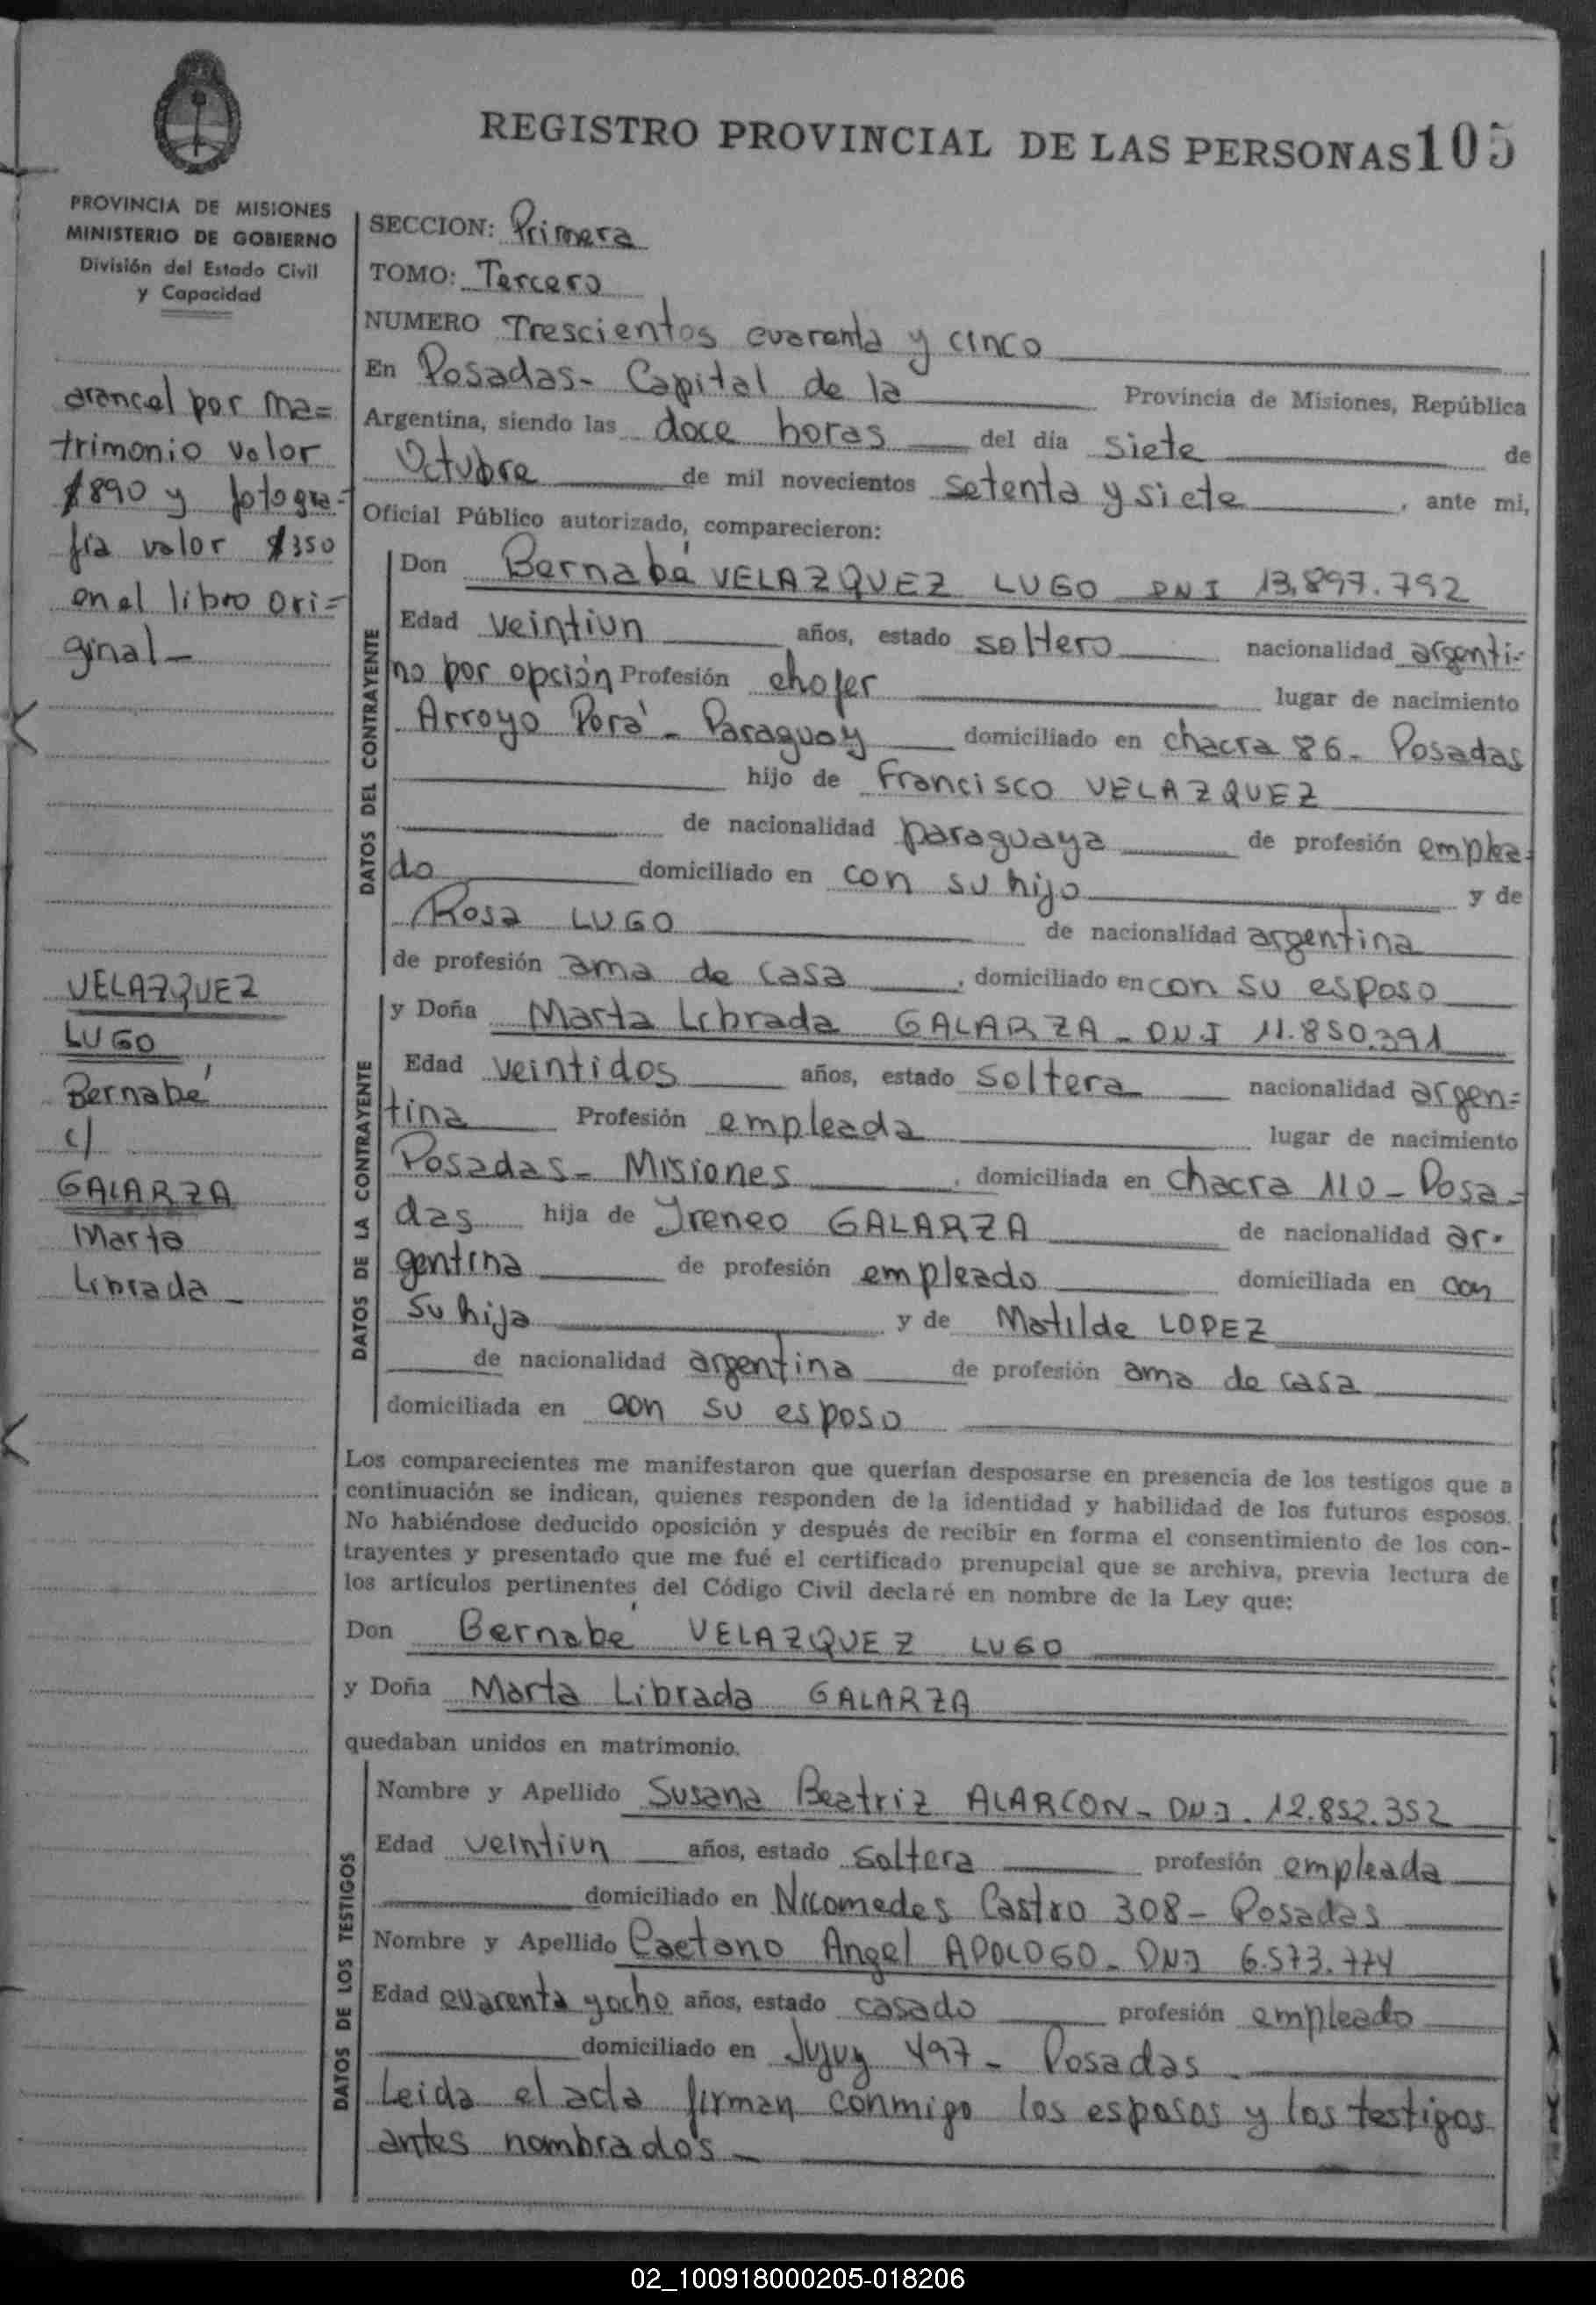 REGISTRO PROVINCIAL DE LAS PERSONAS 105
PROVINCIA DE MISIONES
MINISTERIO DE GOBIERNO
División del Estado Civil
y Capacidad
arancel por ma=
trimonio valor
$890 y fotogra=
fia valor $350
en el libro ori=
ginal-
VELAZQUEZ
LUGO
Bernabé
c/
GALARZA
Marta
Librada -
SECCION: Primera
TOMO: Tercero
NUMERO Trescientos cuarenta y cinco
En Posadas- Capital de la Provincia de Misiones, República
Argentina, siendo las doce horas del día siete de
Octubre de mil novecientos setenta y siete, ante mi,
Oficial Público autorizado, comparecieron:
DATOS DEL CONTRAYENTE
Don Bernabé VELAZQUEZ LUGO DNI 13.897.792
Edad veintiun años, estado soltero nacionalidad argenti-
no por opción Profesión chofer lugar de nacimiento
Arroyo Porá - Paraguay domiciliado en chacra 86- Posadas
hijo de Francisco VELAZQUEZ
de nacionalidad paraguaya de profesión emplea=
do domiciliado en con su hijo y de
Rosa LUGO de nacionalidad argentina
de profesión ama de casa, domiciliado en con su esposo
DATOS DE LA CONTRAYENTE
y Doña Marta Librada GALARZA - DNI 11.850.391
Edad veintidos años, estado soltera nacionalidad argen=
tina Profesión empleada lugar de nacimiento
Posadas- Misiones, domiciliada en chacra 110- Posa=
das hija de Ireneo GALARZA de nacionalidad ar-
gentina de profesión empleado domiciliada en con
su hija y de Matilde LOPEZ
de nacionalidad argentina de profesión ama de casa
domiciliada en con su esposo
Los comparecientes me manifestaron que querían desposarse en presencia de los testigos que a
continuación se indican, quienes responden de la identidad y habilidad de los futuros esposos.
No habiéndose deducido oposición y después de recibir en forma el consentimiento de los con-
trayentes y presentado que me fué el certificado prenupcial que se archiva, previa lectura de
los artículos pertinentes del Código Civil declaré en nombre de la Ley que:
Don Bernabé VELAZQUEZ LUGO
y Doña Marta Librada GALARZA
quedaban unidos en matrimonio.
DATOS DE LOS TESTIGOS
Nombre y Apellido Susana Beatriz ALARCON- DNI. 12.852.352
Edad veintiun años, estado soltera profesión empleada
domiciliado en Nicomedes Castro 308- Posadas
Nombre y Apellido Caetano Angel APOLOGO- DNI 6.573.774
Edad cuarenta y ocho años, estado casado profesión empleado
domiciliado en Jujuy 497- Posadas
Leida el acta firman conmigo los esposos y los testigos
antes nombrados-
02_100918000205-018206